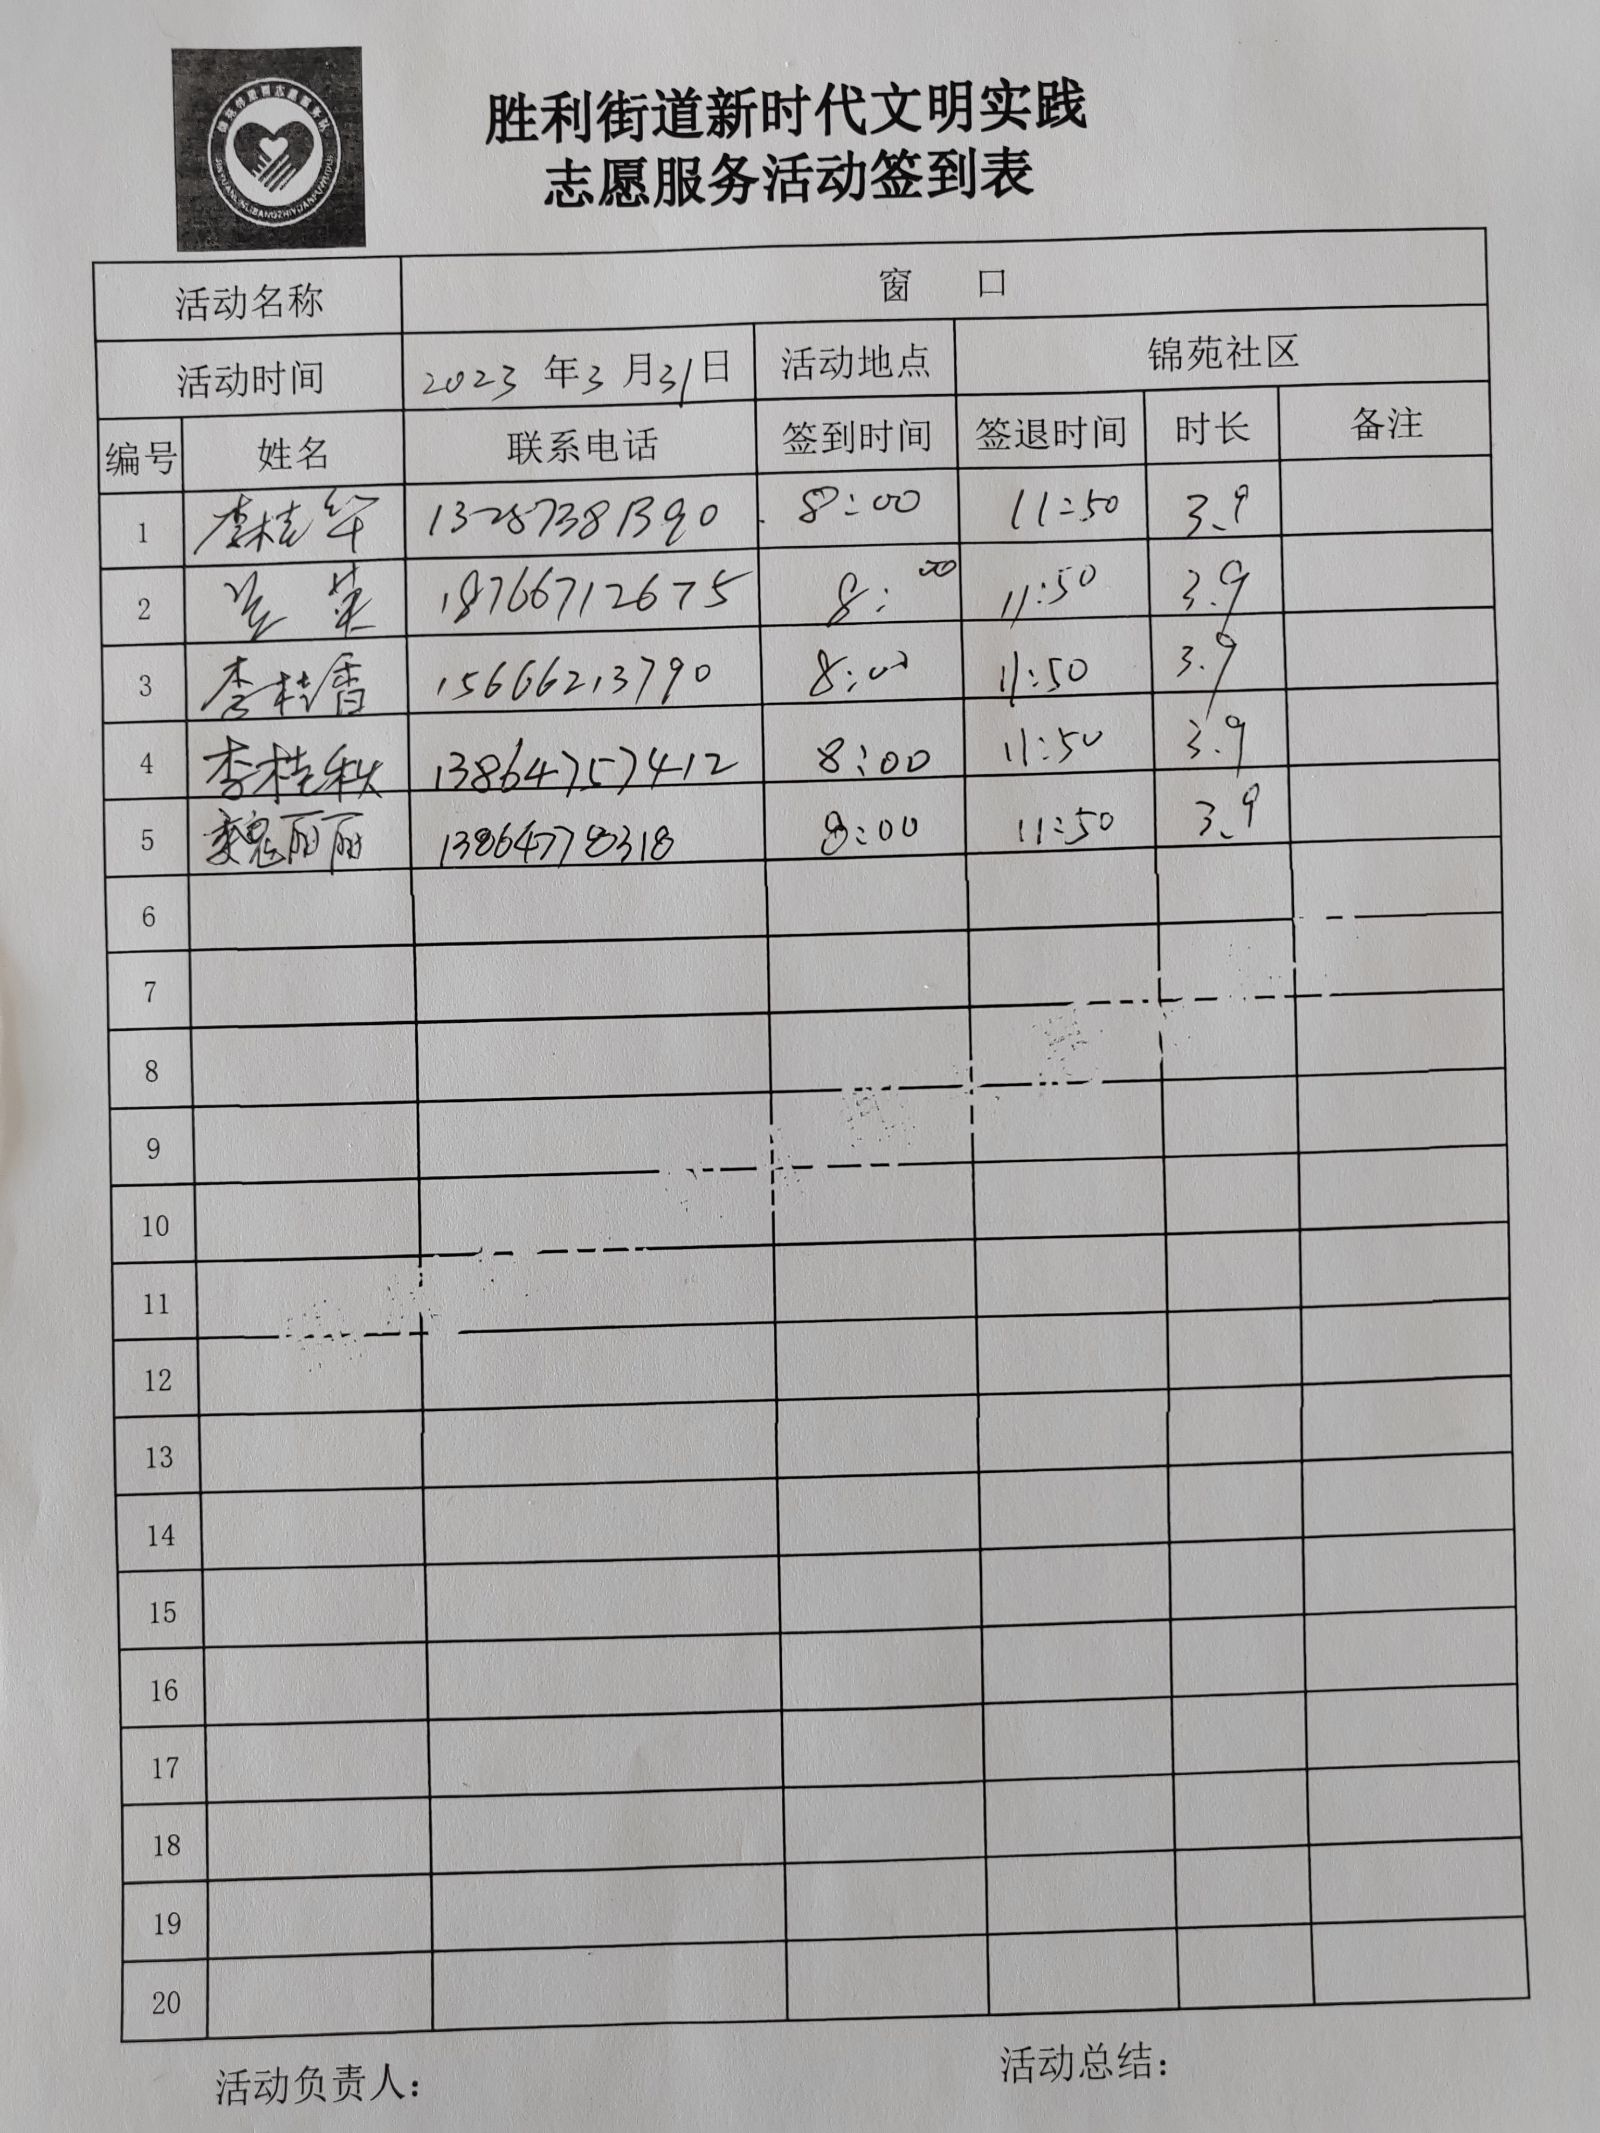 胜利街道新时代文明实践
志愿服务活动签到表
活动名称 窗 口
活动时间 2023 年 3 月 31 日 活动地点 锦苑社区
编号 姓名 联系电话 签到时间 签退时间 时长 备注
1 李桂华 13287381390 8:00 11:50 3.9
2 英 18766712675 8:00 11:50 3.9
3 李桂香 15666213790 8:00 11:50 3.9
4 李桂秋 13864757412 8:00 11:50 3.9
5 魏丽丽 13864778318 8:00 11:50 3.9
6
7
8
9
10
11
12
13
14
15
16
17
18
19
20
活动负责人: 活动总结: